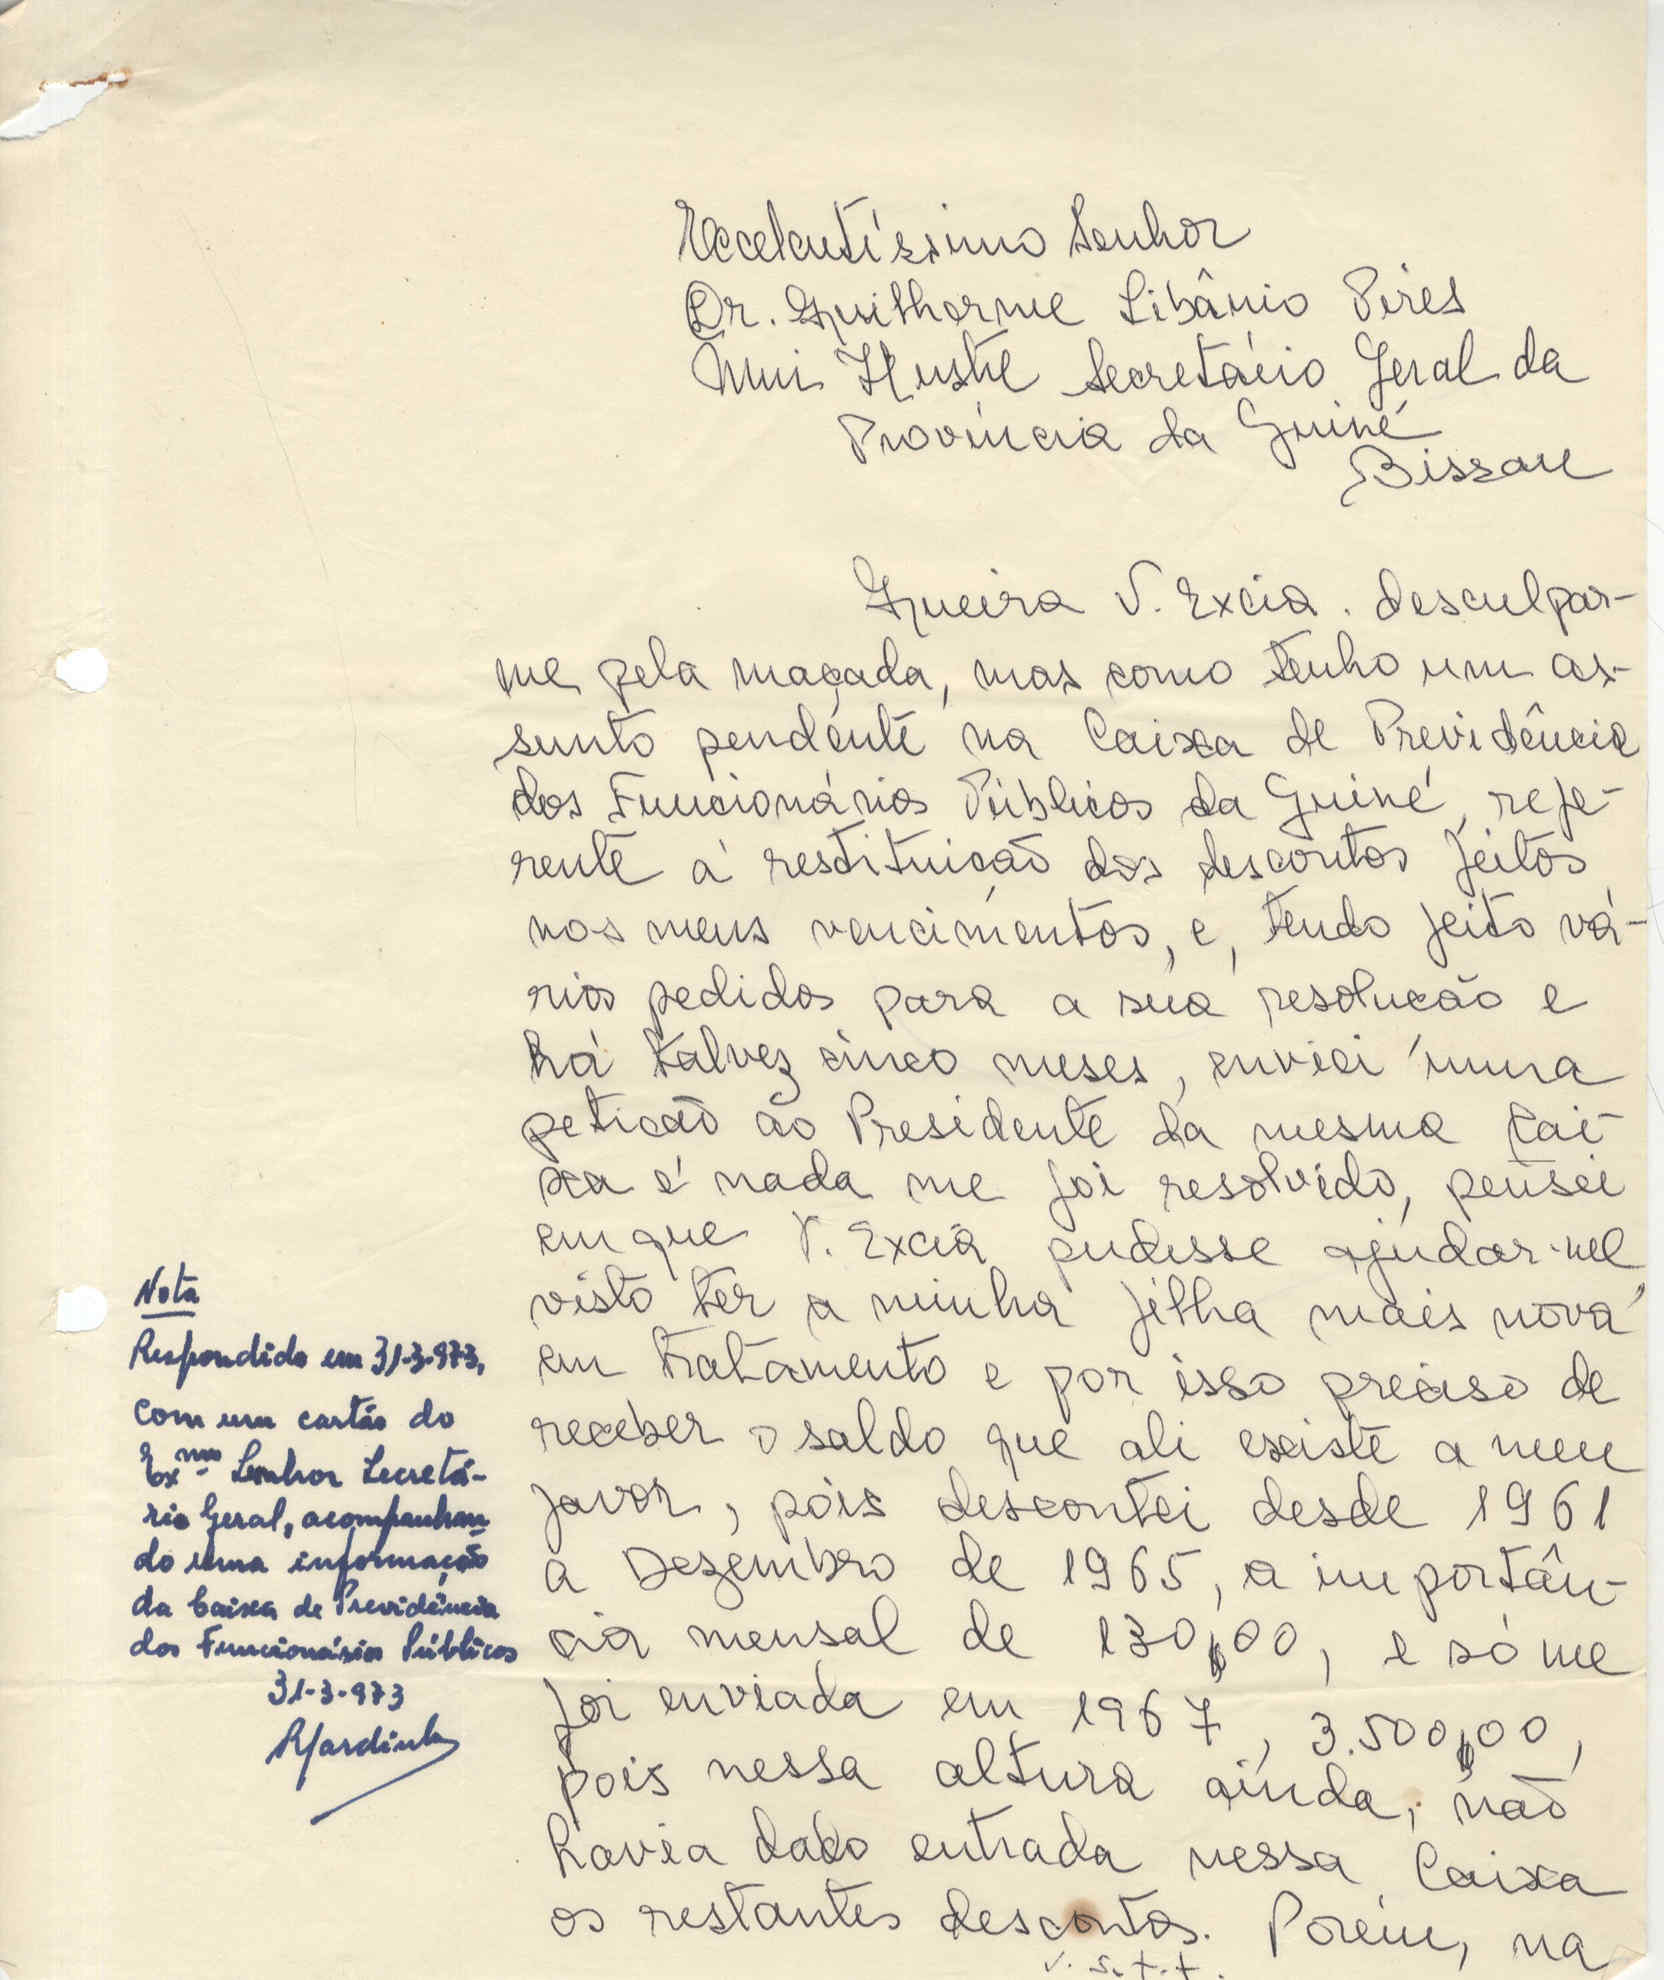 Excelentíssimo Senhor
Dr. Guilherme Libânio Pires
Mui Ilustre Secretário Geral da
Província da Guiné
Bissau
Queira V. Excia. desculpar-
me pela maçada, mas como tenho um as-
sunto pendente na Caixa de Previdência
dos Funcionários Públicos da Guiné, refe-
rente á restituicão dos descontos feitos
nos meus vencimentos, e, tendo feito vá-
rios pedidos para a sua resolucão e
há talvez cinco meses, enviei uma
peticão ao Presidente da mesma Cai-
xa e nada me foi resolvido, pensei
em que V. Excia pudesse ajudar-me,
visto ter a minha filha mais nova
em tratamento e por isso preciso de
receber o saldo que ali existe a meu
favor, pois descontei desde 1961
a Dezembro de 1965, a importân-
cia mensal de 130$00, e só me
foi enviada em 1967, 3.500$00,
pois nessa altura ainda, não
havia dado entrada nessa Caixa
os restantes descontos. Porém, na
v. s. f. f.
Nota
Respondido em 31-3-973,
com um cartão do
Exmo Senhor Secretá-
rio Geral, acompanhan-
do uma informação
da Caixa de Previdência
dos Funcionários Públicos
31-3-973